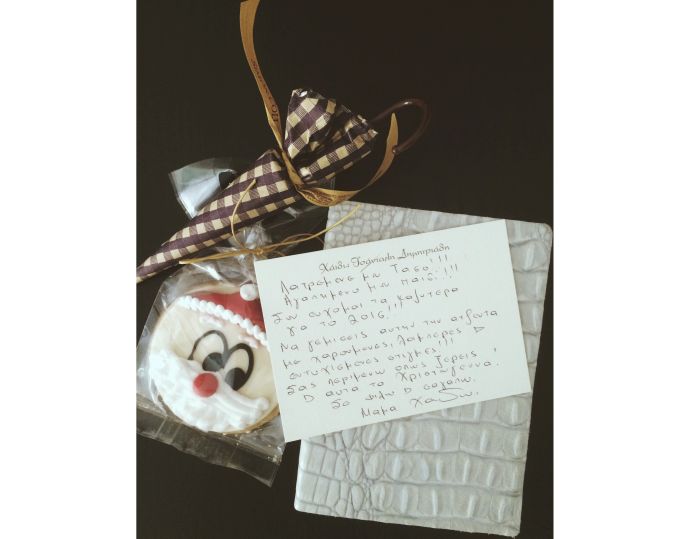 Χάιδω Τσάνταλη Δημητριάδη
Λατρεμένε μου Τάσο!!!
Αγαπημένο μου παιδί!!!
Σου εύχομαι τα καλύτερα
για το 2016!!!
Να γεμίσεις αυτήν την ατζέντα
με χαρούμενες, λαμπερές
ευτυχισμένες στιγμές!!!
Σας περιμένω όπως ξέρεις
αυτά τα Χριστούγεννα.
Σε φιλώ
Μαμά Χάιδω.